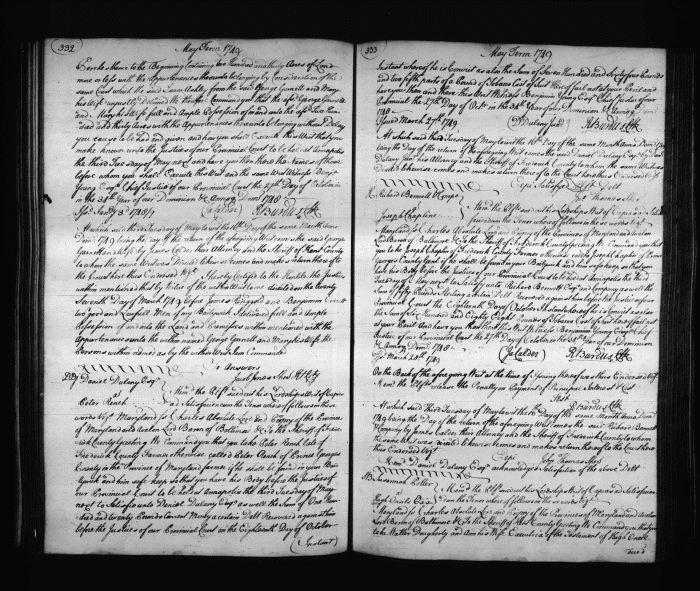 332
May Term 1749
Perches thence to the Beginning Containing two Hundred and thirty Acres of Land
more or less with the Appurtenances thereunto belonging by Consideration of the
same Court whereof the said
his Wife unjustly Detained We therefore Command you that the afd George Garnett
and Mary his Wife full and Ample Possession of in and unto the afd Two Hun-
dred and thirty Acres with the Appurtenances thereunto belonging without Delay
you cause to be had and given and how you shall Execute this Writ that you
make known unto the Justices of our Provincial Court to be held at Annapolis
the third Tuesday of May next and have you then there the Names of those
before whom you shall Execute this Writ and the same Writ Witness Benja
Young Esqr Chief Justice of our Provincial Court the 27th Day of October in
the 34th Year of our Dominion &c Annoq Domi 1748
Issd Janry 3d 1748/9
At which said third Tuesday of May to wit the 16th Day of the same Month Anno
Domi 1749 being the Day of the return of the aforegoing Writ comes the said George
Garnett and the Sheriff of Kent County
to whom the same Writ was Directed likewise comes and makes return thereof to
the Court here thus Endorsed Vizt I hereby Certifie to the Honble the Justices
within mentioned that by Virtue of the within Writ to me directed on the twenty
Seventh Day of March 1749 before James Ringgold and Benjamin
two good and Lawfull Men of my Bailiwick I delivered full and Ample
Possession of and into the Land and Premisses within mentioned with the
Appurtenances unto the within named George Garnett and Mary his Wife the
Persons within named as by the within Writ I am Commanded
So Answers
Daniel Dulany Esqr
vs
Peter Rench
Memd the Plf sued out his Lordships Writ of Capias
ad Satisfaciendum the Tenor whereof follows in these
words Vizt Maryland ss Charles Absolute Lord and Propry of the Province
of Maryland and Avalon Lord Baron of Baltimore &c To the Sheriff of Frede-
rick County Greeting We Command you that you take Peter Rench late of
Frederick County Farmer otherwise called Peter Rench of Prince Georges
County in the Province of Maryland farmer if he shall be found in your Bai-
liwick and him safe keep so that you have his Body before the Justices of
our Provincial Court to be held at Annapolis the third Tuesday of May
next to Satisfie unto Daniel Dulany Esqr as well the Sum of One Hun-
dred and twenty Pounds Current Money a certain Debt Recovered against him
before the Justices of our Provincial Court on the Eighteenth Day of October
(Instant)
333
May Term 1749
Instant whereof he is Convict as also the Sum of Seven Hundred and Forty four Pounds
and two fifth parts of a Pound of Tobacco Cost of Suit Hereof fail not at your Peril and
have you then and there this Writ Witness Benjamin Young Esqr Chief Justice of our
Provincial the 27th Day of Octr in the 34th Year of our Dominion &c Annoq Domi
1748
Issued March 27th 1749
D Dulany Junr
At which said third Tuesday of May to wit the 16th Day of the same Month Anno Domi 1749
being the Day of the return of the aforegoing Writ comes the said Daniel Dulany Esqr by Daniel
Dulany Junr his Attorney and the Sheriff of Frederick County to whom the same Writ was
Directed likewise comes and makes return thereof to the Court here thus Endorsed Vizt
Cepi Satisfied Plf Debt
Jno Thomas Shff
Richard Bennett & Compa
vs
Joseph Chapline
Memd the Plf sued out his Lordships Writ of Capias ad Satis-
faciendum the Tenor whereof follows in these words Vizt
Maryland ss Charles Absolute Lord and Propry of the Province of Maryland and Avalon
Lord Baron of Baltimore &c To the Sheriff of Frederick County Greeting We Command you that
you take Joseph Chapline late of Frederick County Farmer otherwise called Joseph Chapline of Prince
Georges County if he shall be found in your Bailiwick and him safe keep so that you
have his Body before the Justices of our Provincial Court to be held at Annapolis the third
Tuesday of May next to Satisfie unto Richard Bennett Esqr and Company as well the
Sum of
Provincial Court the Eighteenth Day of October Instant whereof he is Convict as also
the Sum of Six Hundred and Eighty Eight Pounds of Tobacco Cost of Suit Hereof fail not
at your Peril and have you then there this Writ Witness Benjamin Young Esqr Chief
Justice of our Provincial Court the 27th Day of October in the 34th Year of our Dominion
&c Annoq Domi 1748
Issd March 24th 1749
On the Back of the aforegoing Writ at the time of Issuing thereof was thus Endorsed Vizt
Memd the Plf releases the Penalty on Payment of Principal Interest & Cost
Test
At which said Third Tuesday of May to wit the 16th Day of the same Month Anno Domi
1749 being the Day of the return of the aforegoing Writ comes the said Richard Bennett
& Company by James Calder their Attorney and the Sheriff of Frederick County to whom
the same Writ was Directed likewise comes and makes return thereof to the Court here
thus Endorsed Vizt
Cepi
Jno Thomas Shff
Memd Daniel Dulany Esqr acknowledges Satisfaction of the above Debt
Susannah
vs
Memd the Plf sued out his Lordships Writ of Capias ad Satisfacien-
dum the Tenor whereof follows in these words Vizt
Maryland ss Charles Absolute Lord and Propry of the Provinces of Maryland and Avalon
Lord Baron of Baltimore &c To the Sheriff of Kent County Greeting We Command you that you
take Matthew Dougherty and Ann his Wife Executrix of the Testament of Hugh